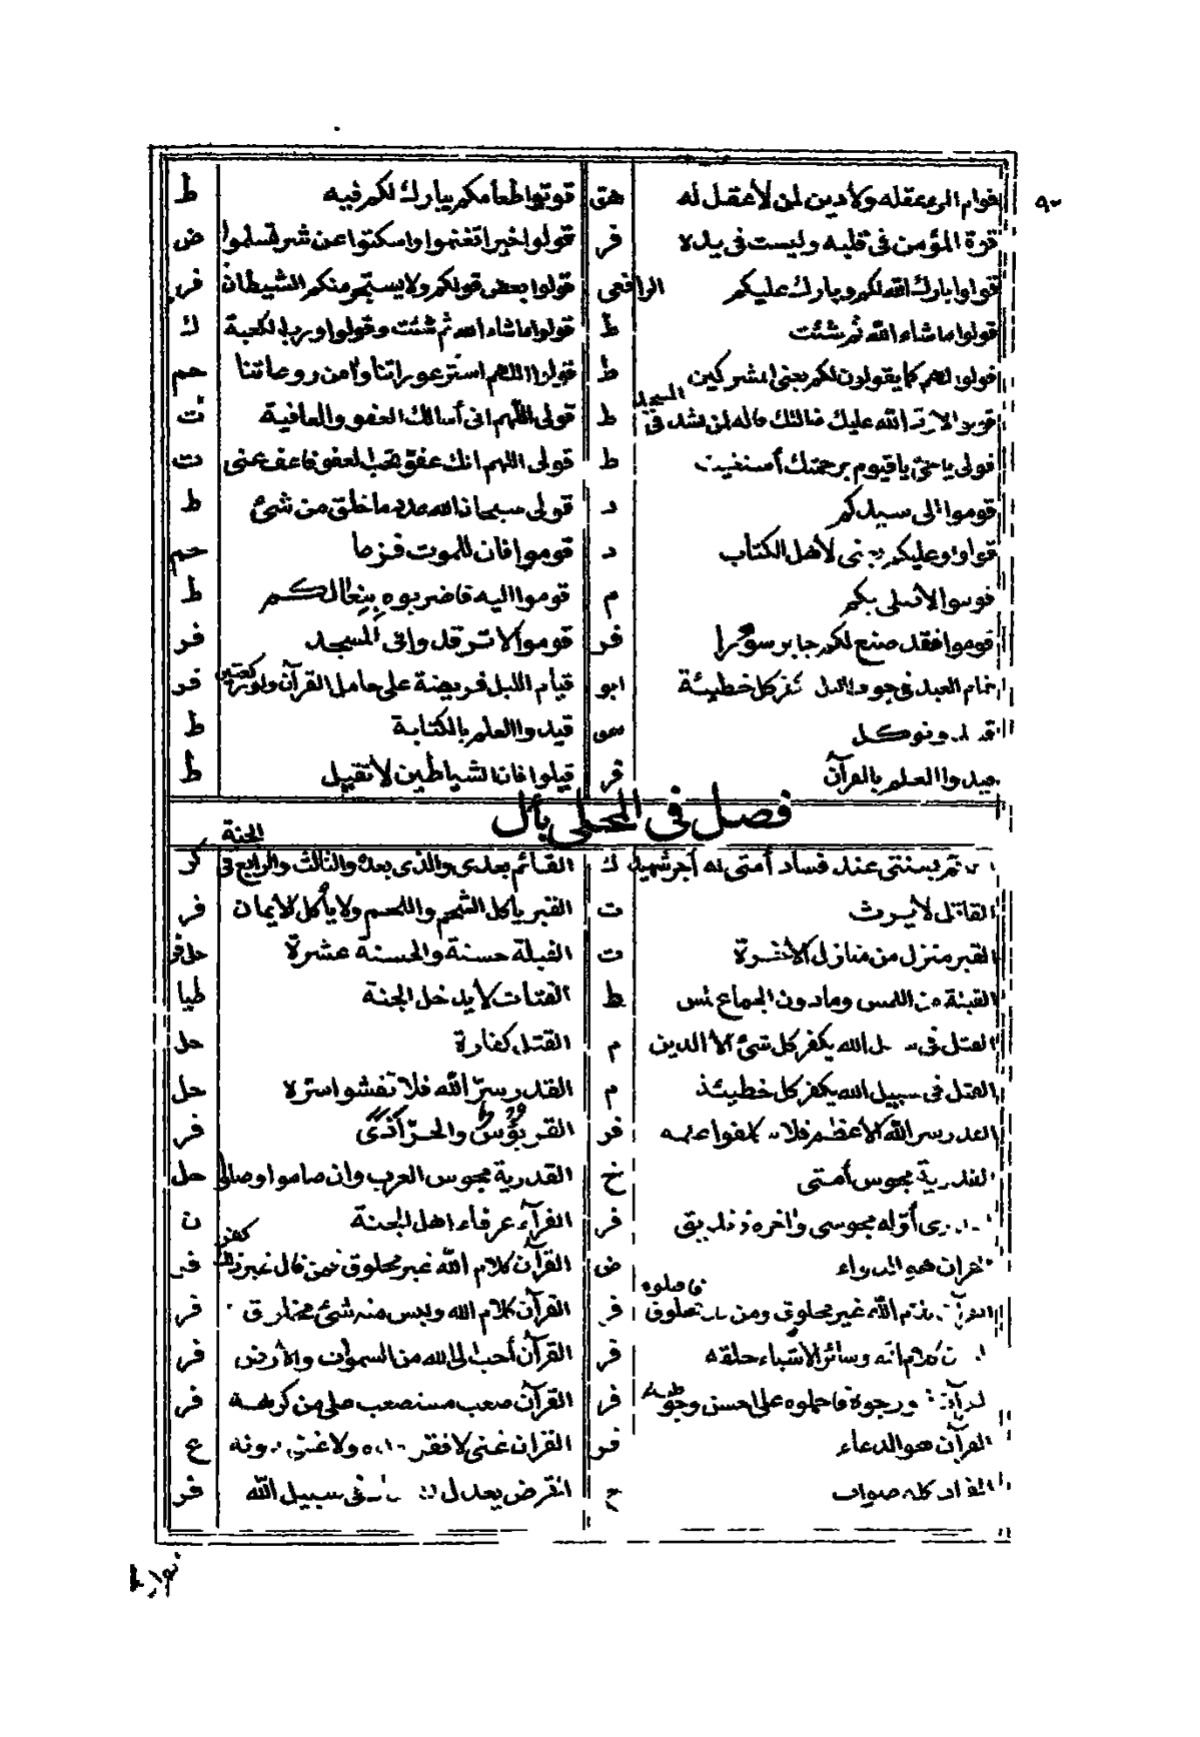 ٩٠
قوام المرء عقله ولا دين لمن لا عقل له هق قوتوا طعامكم يبارك لكم فيه ط
قوة المؤمن في قلبه وليست في يده فر قولوا خيرا تغنموا واسكتوا عن شر تسلموا ض
قولوا بارك الله لكم وبارك عليكم الرافعي قولوا بعض قولكم ولا يستجر منكم الشيطان فر
قولوا ما شاء الله ثم شئت ط قولوا ما شاء الله ثم شئت وقولوا ورب الكعبة ك
قولوا لهم كما يقولون لكم يعنى المشركين ط قولوا اللهم استر عوراتنا وآمن روعاتنا حم
الله عليك ضالتك قاله لمن نشد في المسجد ط قولى اللهم انى أسالك العفو والعافية ت
قولى يا حى يا قيوم برحمتك أستغيث ط قولى اللهم انك عفو تحب العفو فاعف عنى ت
قوموا الى سيدكم د قولى سبحان الله عدد ما خلق من شئ ط
قولوا وعليكم يعنى لأهل الكتاب د قوموا فان للموت فزعا حم
قوموا لأصلى بكم م قوموا اليه فاضربوه بنعالكم ط
قوموا فقد صنع لكم جابر سورا فر قوموا لا ترقدوا فى المسجد فر
العبد في جوف الليل كل خطيئة ابو قيام الليل فريضة على حامل القرآن ولو ركعتين فر
وتوكل قيدوا العلم بالكتابة ط
العلم بالقرآن فر قيلوا فان الشياطين لا تقيل ط
فصل في المحلى بأل
بسنتى عند فساد أمتى له أجر شهيد ك القائم بعدى والذى بعده والثالث والرابع فى الجنة كر
القاتل لا يرث ت القبر يأكل الشحم واللحم ولا يأكل الايمان فر
القبر منزل من منازل الآخرة ت القبلة حسنة والحسنة عشرة حل فر
القبلة من اللمس وما دون الجماع لمس ط القتات لا يدخل الجنة طيا
القتل فى الله يكفر كل شئ الا الدين م القتل كفارة حل
القتل فى سبيل الله يكفر كل خطيئة م القدر سر الله فلا تفشوا سره حل
سر الله الأعظم فلا فر القر بؤس والحر أذى فر
القدرية مجوس أمتى خ القدرية مجوس العرب وان صاموا وصلوا حل
أوله مجوسى وآخره زنديق فر القراء عرفاء اهل الجنة ن
القرآن هو الدواء ض القرآن كلام الله غير مخلوق فمن قال غير ذلك كفر فر
الله غير مخلوق ومن فاقتلوه فر القرآن كلام الله وليس منه شئ مخلوق فر
كلام الله وسائر الأشياء خلقه فر القرآن أحب الى الله من السموات والأرض فر
وجوه فاحملوه على احسن وجوهه فر القرآن صعب مستصعب على من كرهه فر
القرآن هو الدعاء فر القرآن غنى لا فقر ولا غنى دونه ع
كله صواب القرض يعدل فى سبيل الله فر